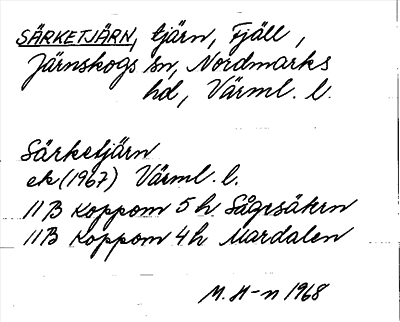 SÄRKETJÄRN, tjärn, Fjäll,
Järnskogs sn, Nordmarks
hd, Värml. l.
Särketjärn
ek (1967) Värml. l.
11B Koppom 5h Sågesäkern
11B Koppom 4h Mardalen
M. H-n 1968